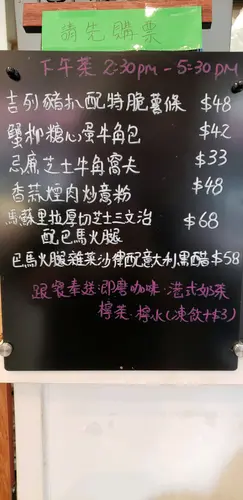 請先購票
下午茶 2:30pm - 5:30pm
吉列豬扒配特脆薯條 $48
蟹柳糖心蛋牛角包 $42
忌廉芝士牛角窩夫 $33
香蒜煙肉炒意粉 $48
馬蘇里拉厚切芝士三文治 $68
配巴馬火腿
巴馬火腿雜菜沙律配意大利黑醋 $58
跟餐奉送:即磨咖啡.港式奶茶
檸茶.檸水(凍飲+$3)